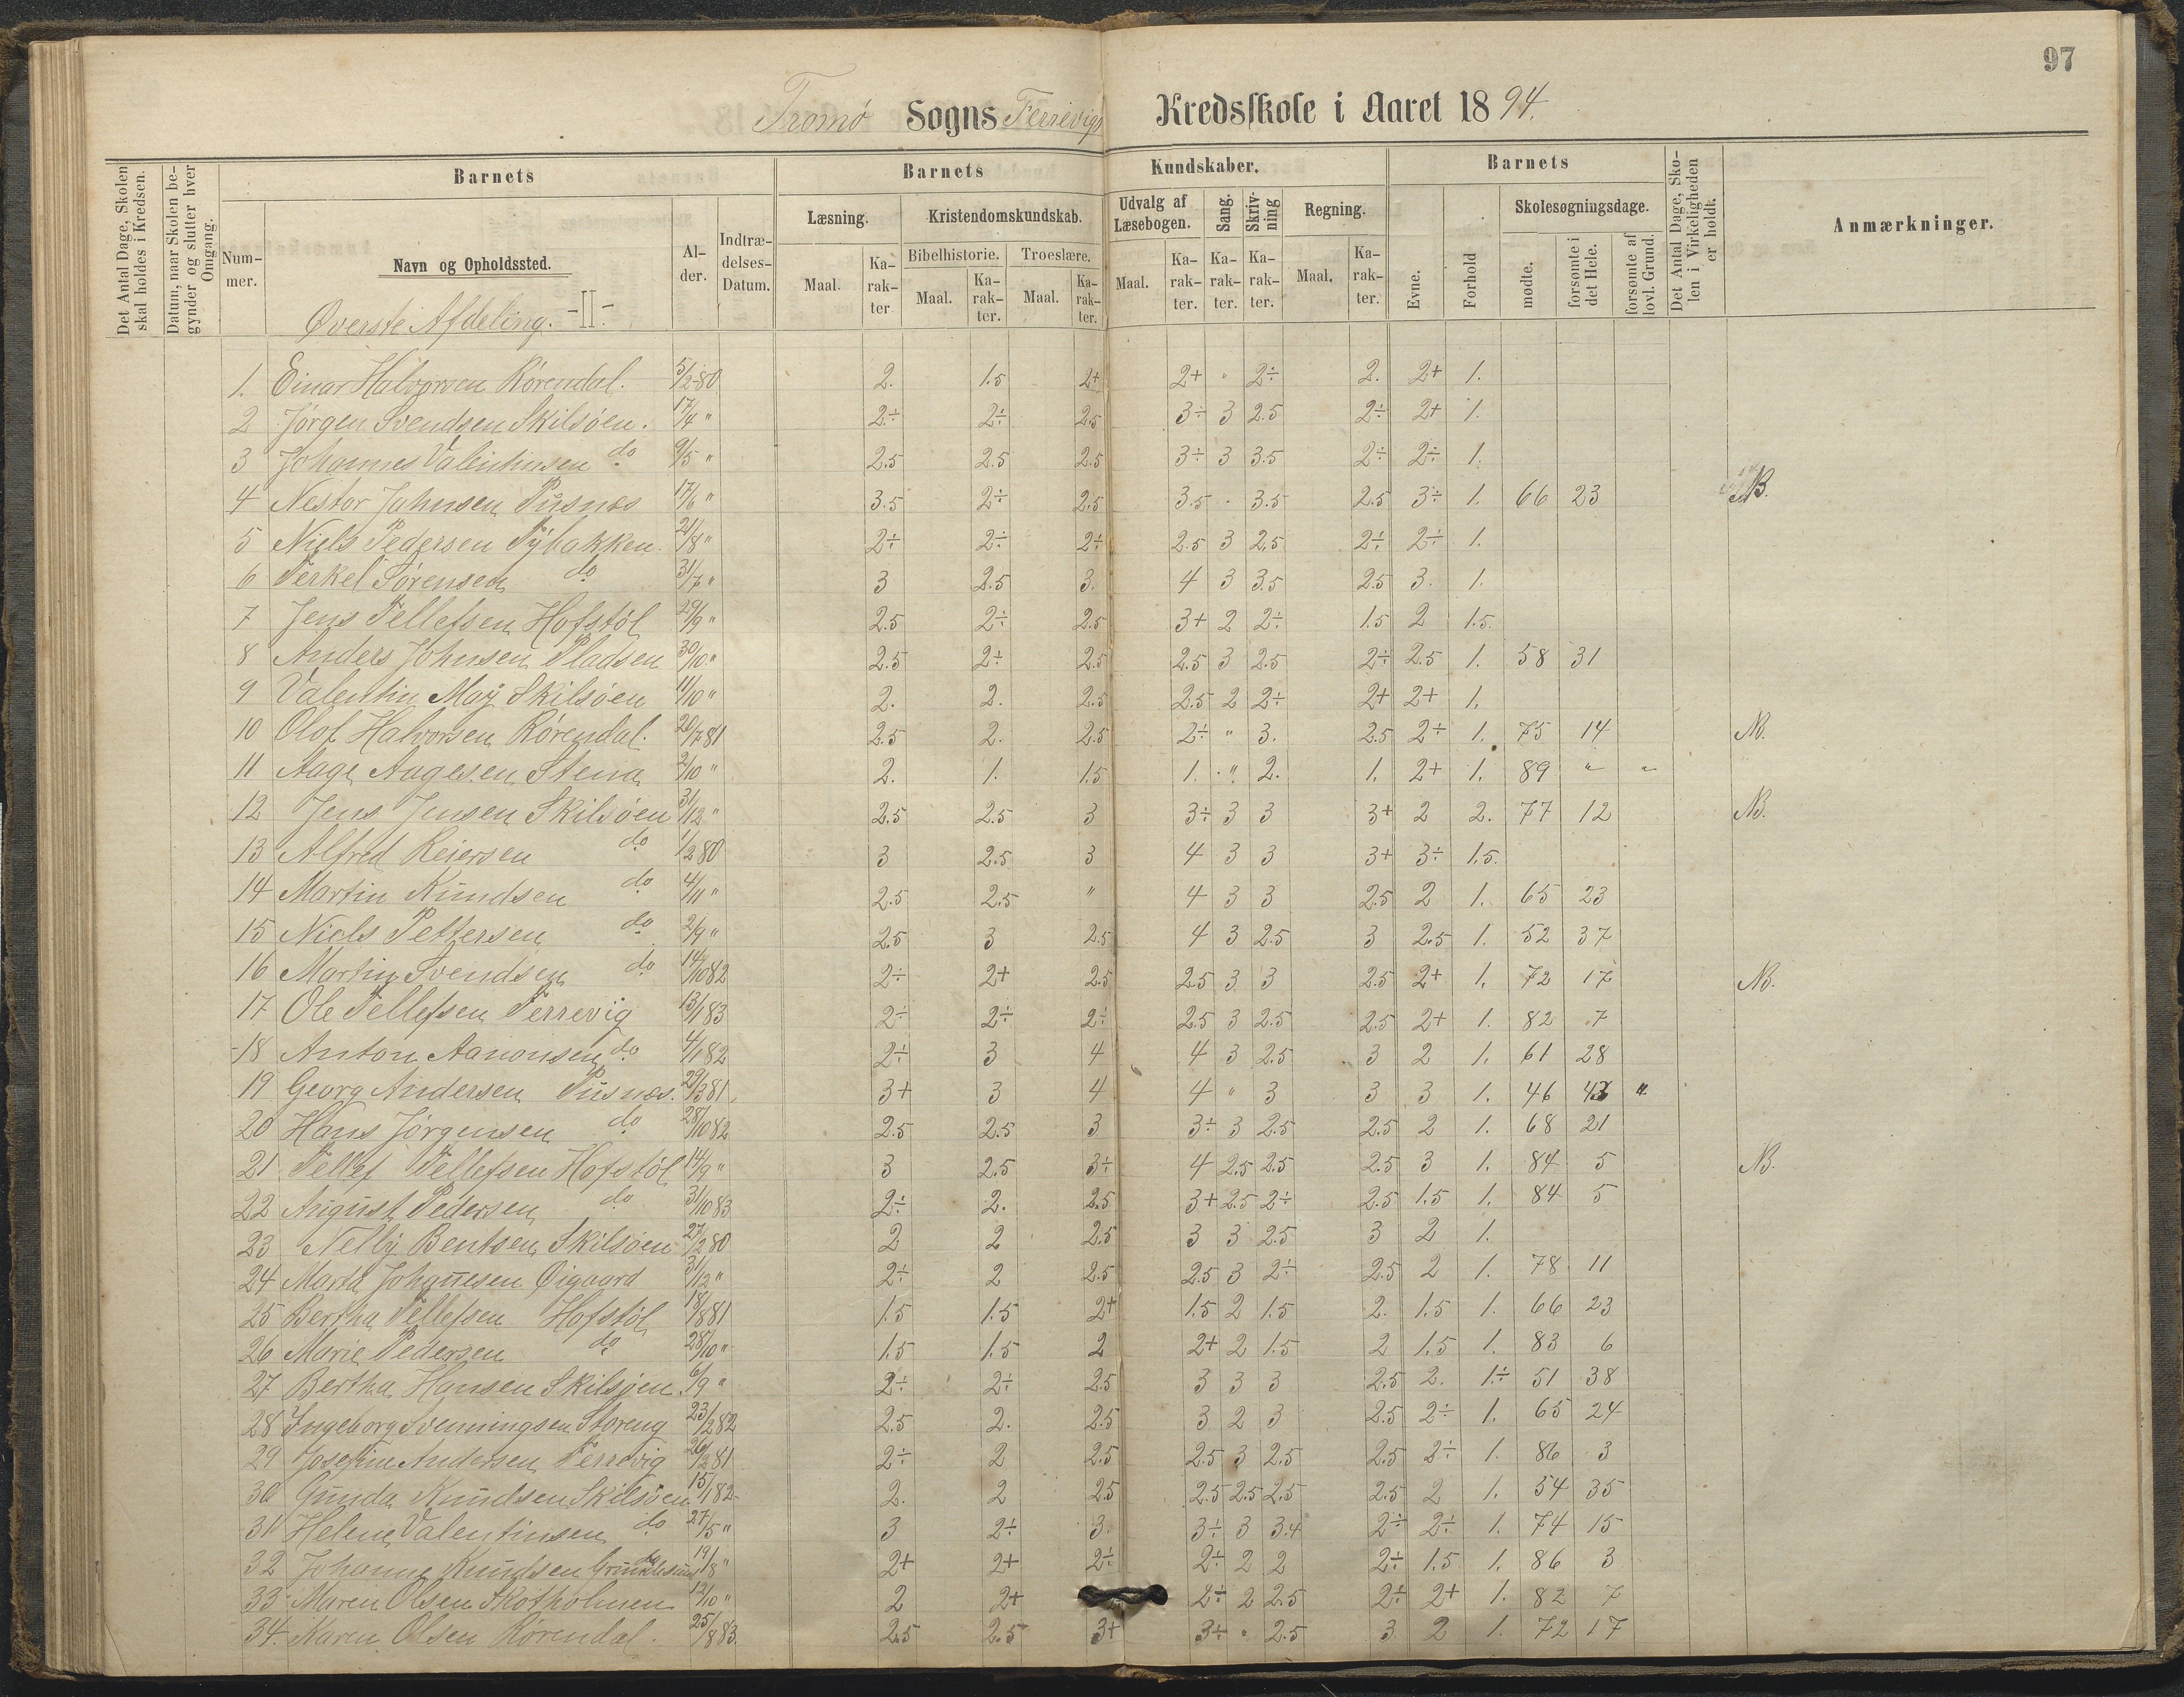 97
Tromø Sogns Terrevigs Kredsskole i Aaret 1894.
Det Antal Dage, Skolen skal holdes i Kredsen.
Datum, naar Skolen begynder og slutter hver Omgang.
Barnets
Barnets
Kundskaber.
Barnets
Det Antal Dage, Skolen i Virkeligheden er holdt.
Anmærkninger.
Nummer.
Navn og Opholdssted.
Alder.
Indtrædelses-Datum.
Læsning.
Kristendomskundskab.
Udvalg af Læsebogen.
Sang.
Skrivning
Regning.
Evne.
Forhold
Skolesøgningsdage.
Bibelhistorie.
Troeslære.
Maal.
Karakter
Maal.
Karakter.
Maal.
Karakter.
Maal.
Karakter.
Karakter.
Karakter.
Maal.
Karakter.
mødte.
forsømte i det Hele.
forsømte af lovl. Grund.
Øverste Afdeling. -II-
1. Einar Halvorsen Rørendal. 5/2-80 2. 1.5 2+ 2+ " 2÷ 2. 2+ 1.
2 Jørgen Svendsen Skilsøen. 17/4 " 2÷ 2÷ 2.5 3÷ 3 2.5 2÷ 2+ 1.
3 Johannes Valentinsen do 9/5 " 2.5 2.5 2.5 3÷ 3 3.5 2÷ 2÷ 1.
4 Nestor Johnsen Pusnæs 17/6 " 3.5 2÷ 2.5 3.5 . 3.5 2.5 3÷ 1. 66 23 NB.
5 Niels Pedersen Sybakken. 21/8 " 2÷ 2÷ 2÷ 2.5 3 2.5 2÷ 2÷ 1.
6 Terkel Sørensen do 31/7 " 3 2.5 3. 4 3 3.5 2.5 3. 1.
7 Jens Tellefsen Hofstøl 29/9 " 2.5 2÷ 2.5 3+ 2 2÷ 1.5 2 1.5.
8 Anders Johnsen Pladsen 30/10 " 2.5 2÷ 2.5 2.5 3 2.5 2÷ 2.5 1. 58 31
9 Valentin May Skilsøen 11/10 " 2. 2. 2.5 2.5 2 2÷ 2+ 2+ 1.
10 Olof Halvorsen Rørendal. 20/7 81 2.5 2. 2.5 2÷ " 3. 2.5 2÷ 1. 75 14 NB.
11 Aage Aagesen Stena 2/10 " 2. 1. 1.5 1. " 2. 1. 2+ 1. 89 " "
12 Jens Jensen Skilsøen 31/12 " 2.5 2.5 3 3÷ 3 3 3+ 2 2. 77 12 NB.
13 Alfred Reiersen do 1/2 80 3 2.5 3 4 3 3 3+ 3÷ 1.5.
14 Martin Knudsen do 4/11 " 2.5 2.5 " 4 3 3 2.5 2 1. 65 23
15 Niels Pettersen do 2/9 " 2.5 3 2.5 4 3 2.5 3 2.5 1. 52 37
16 Martin Svendsen do 14/10 82 2÷ 2+ 2.5 2.5 3 3 2.5 2+ 1. 72 17 NB.
17 Ole Tellefsen Terrevig 13/1 83 2÷ 2÷ 2÷ 2.5 3 2.5 2.5 2+ 1. 82 7
18 Anton Aanonsen do 4/1 82 2÷ 3 4 4 3 2.5 3 2 1. 61 28
19 Georg Andersen Pusnæs. 29/3 81 3+ 3 4 4 " 3 3 3 1. 46 43 "
20 Hans Jørgensen do 28/10 82 2.5 2.5 3 3÷ 3 2.5 2.5 2 1. 68 21
21 Tellef Tellefsen Hofstøl 14/9 " 3 2.5 3÷ 4 2.5 2.5 2.5 3 1. 84 5 NB.
22 August Pedersen do 31/10 83 2÷ 2. 2.5 3+ 2.5 2÷ 2.5 1.5 1. 84 5
23 Nelly Bentsen Skilsøen 27/2 80 2 2 2.5 3 3 2.5 3 2 1.
24 Marta Johannesen Øigaard 31/12 " 2÷ 2 2.5 2.5 3 2÷ 2.5 2 1. 78 11
25 Bertha Tellefsen Hofstøl 18/8 81 1.5 1.5 2+ 1.5 2 1.5 2. 1.5 1. 66 23
26 Marie Pedersen do 28/10 " 1.5 1.5 2 2+ 2 1.5 2 1.5 1. 83 6
27 Bertha Hansen Skilsøen. 6/9 " 2÷ 2÷ 2.5 3 3 3 2.5 2. 1÷ 51 38
28 Ingeborg Svenningsen Storeng 23/2 82 2.5 2. 2.5 3 2 3 2.5 2÷ 1. 65 24
29 Josefine Andersen Terrevig 26/2 81 2÷ 2 2.5 2.5 3 2.5 2.5 2÷ 1. 86 3
30 Gunda Knudsen Skilsøen 15/1 82 2. 2 2.5 2.5 2.5 2.5 2.5 2 1. 54 35
31 Helene Valentinsen do 27/5 " 3 2÷ 3. 3÷ 3 3.4 2÷ 2÷ 1. 74 15
32 Johanne Knudsen do 19/8 " 2+ 2+ 2÷ 2÷ 2 2 2÷ 1.5 1. 86 3
33 Maren Olsen Skotholmen 12/10 " 2 2+ 2÷ 2 2.5 2÷ 2+ 1. 82 7
34. Karen Olsen Rørendal. 25/8 83. 2.5 2.5 3+ 3÷ " 2.5 3 2 1. 72 17